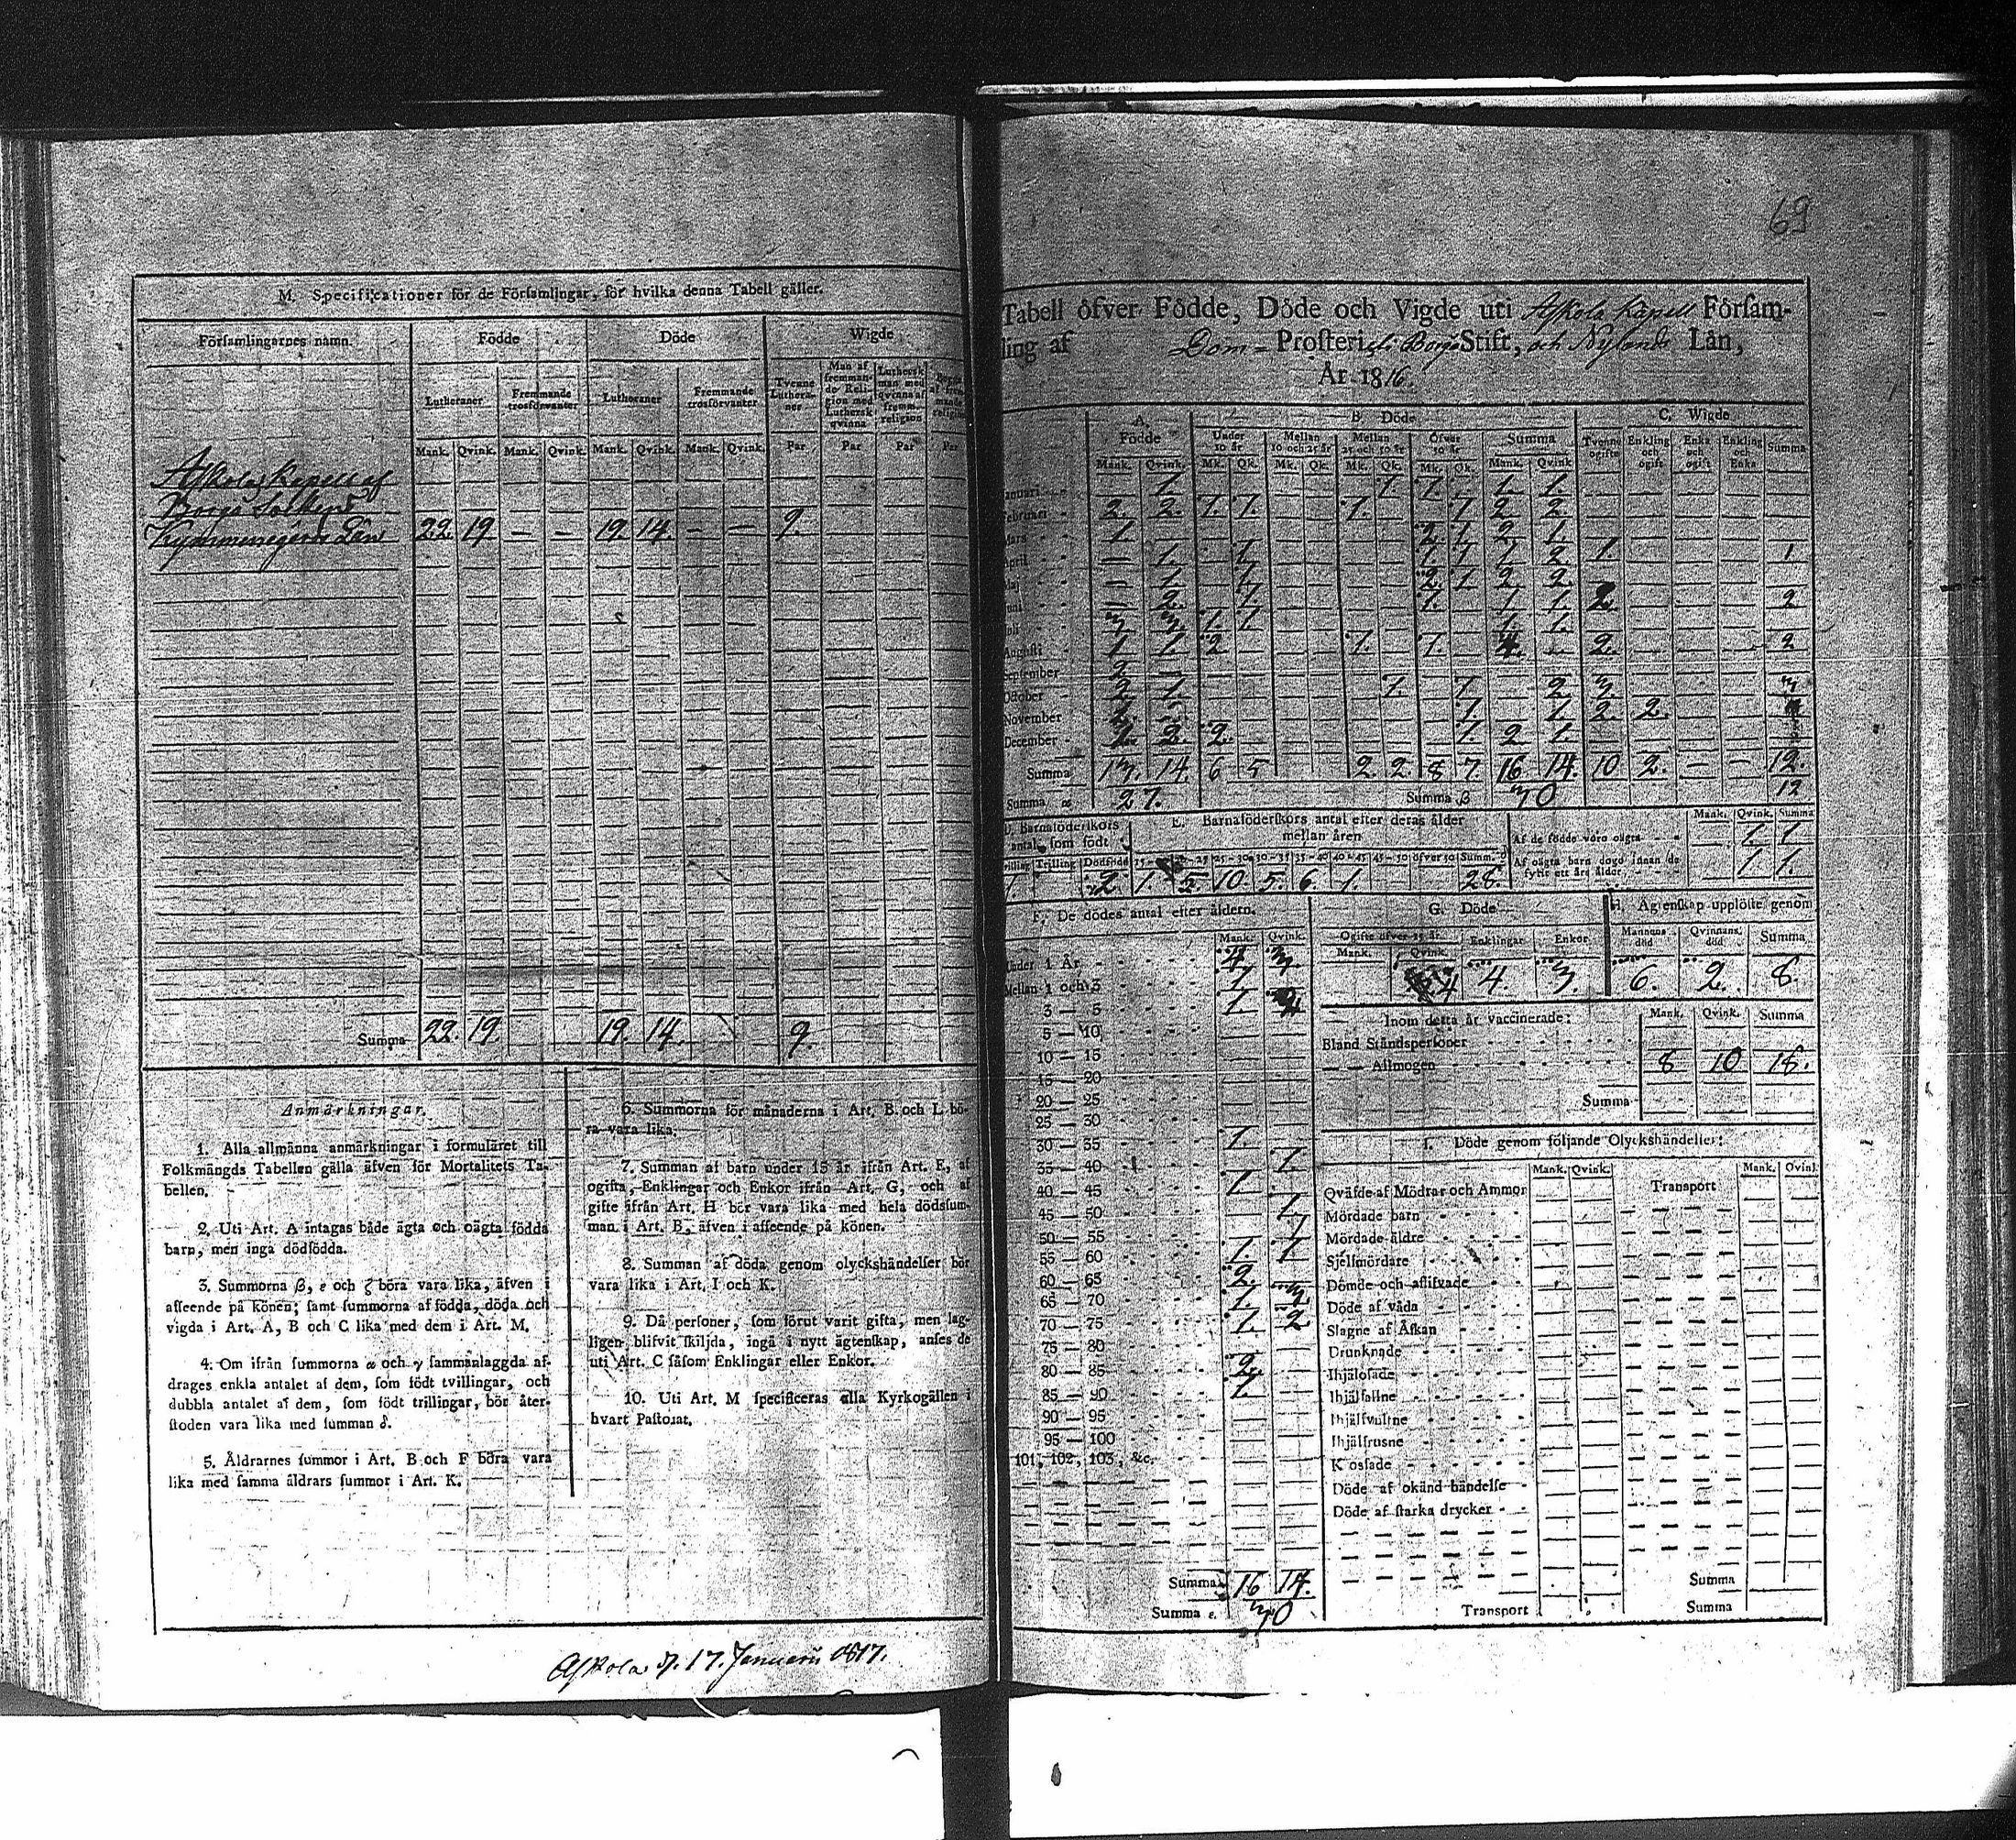 M. Specificationer för de Församlingar, för hvilka denna Tabell gäller.
Församlingarnes namn. Födde Döde Wigde
Lutheraner Fremmande trosförvanter Lutheraner Fremmande trosförvanter Tvenne Lutheraner Man af fremmande Religion med Luthersk qvinna Luthersk man med qvinna af fremm. religion
Mank. Qvink. Mank. Qvink. Mank. Qvink. Mank. Qvink. Par Par Par Par
Askola Kapell af
Borgå Sokn
Kymmenegårds Län 22 19 — — 19. 14. — — 9.
Summa 22. 19. 19. 14. 9.
Anmärkningar.
1. Alla allmänna anmärkningar i formuläret till
Folkmängds Tabellen gälla äfven för Mortalitets Ta-
bellen.
2. Uti Art. A intagas både ägta och oägta födda
barn, men inga dödfödda.
3. Summorna β, ε och ζ böra vara lika, äfven i
afseende på könen; samt summorna af födda, döda och
vigda i Art. A, B och C lika med dem i Art. M.
4. Om ifrån summorna α och γ sammanlaggda af-
drages enkla antalet af dem, som födt tvillingar, och
dubbla antalet af dem, som födt trillingar, bör åter-
stoden vara lika med summan δ.
5. Åldrarnes summor i Art. B och F böra vara
lika med samma åldrars summor i Art. K.
6. Summorna för månaderna i Art. B. och L bö-
ra vara lika.
7. Summan af barn under 15 år ifrån Art. F, af
ogifta, Enklingar och Enkor ifrån Art. G, och af
gifte ifrån Art. H bör vara lika med hela dödssum-
man i Art. B, äfven i afseende på könen.
8. Summan af döda genom olyckshändelser bör
vara lika i Art. I och K.
9. Då personer, som förut varit gifta, men lag-
ligen blifvit skiljda, ingå i nytt ägtenskap, anses de
uti Art. C såsom Enklingar eller Enkor.
10. Uti Art. M specificeras alla Kyrkogällen i
hvart Pastorat.
Askola d. 17. Januarii 1817.
69
Tabell öfver Födde, Döde och Vigde uti Askola Kapell Församling
af Dom-Prosteri, Borgå Stift, och Nylands Län,
År 1816.
A. Födde B Döde C. Wigde
Under 10 år Mellan 10 och 25 år Mellan 25 och 50 år Öfver 50 år Summa Tvenne ogifte Enkling och ogift Enka och ogift Enkling och Enka Summa
Mank. Qvink. Mk. Qk. Mk. Qk. Mk. Qk. Mk. Qk. Mank. Qvink
Januari — 1. 1. 1. 1. 1.
Februari 2. 2. 1. 1. 1. 1 2 2.
Mars 1. 2. 1. 2. 1.
April — 1. 1. 1. 1. 1. 2. 1. 1
Maj — 1. 1. 2. 1 2. 2.
Juni — 2. 1. 1. 1. 1. 2. 2
Juli 1. 1 1. 1.
Augusti 1 1. 2. 1. 1. 4. — 2. 2
September 2
October 2. 1. 1. 1. 2 3. 3
November 1. 1. 2. 2.
December 2. 2. 1. 2. 1.
Summa 13. 14. 6 5 2. 2. 8 7. 16 14. 10 2. — — 12.
Summa α 27. Summa β 30 12
D. Barnaföderskors antal, som födt
Trilling Dödfödd
2.
E. Barnaföderskors antal efter deras ålder
mellan åren
25 — 30 30 — 35 35 — 40 40 — 45 45 — 50 öfver 50 Summ. δ
1. 5. 10. 5. 6. 1. 28.
Mank. Qvink. Summa
Af de födde voro oägta 1. 1
Af oägta barn dogo innan de
fyllt ett års ålder 1 1.
F. De dödes antal efter åldern.
Mank. Qvink.
Under 1 År 4 3.
Mellan 1 och 3 1.
3 — 5 1. 2
5 — 10
10 — 15
15 — 20
20 — 25
25 — 30
30 — 35 1.
35 — 40 1.
40 — 45 1.
45 — 50 1
50 — 55 1
55 — 60 1. 1
60 — 65 2.
65 — 70 1. 3
70 — 75 1 2
75 — 80
80 — 85 2.
85 — 90 1.
90 — 95
95 — 100
101, 102, 103, &c.
Summa 16 14.
Summa ε. 30
G. Döde
Ogifte öfver 15 år. Enklingar Enkor
Mank. Qvink.
4 4. 3.
H. Ägtenskap upplöste genom
Mannens död Qvinnans död Summa
6. 2. 8
Inom detta år vaccinerade: Mank. Qvink. Summa
Bland Ståndspersoner
— — Allmogen 8 10 18.
Summa
I. Döde genom följande Olyckshändelser:
Mank. Qvink. Mank. Qvink.
Qväfde af Mödrar och Ammor Transport
Mördade barn
Mördade äldre
Sjelfmördare
Dömde och aflifvade
Döde af våda
Slagne af Åskan
Drunknade
Ihjälosade
Ihjälfallne
Ihjälsvultne
Ihjälfrusne
Krossade
Döde af okänd händelse
Döde af starka drycker
Summa
Transport Summa